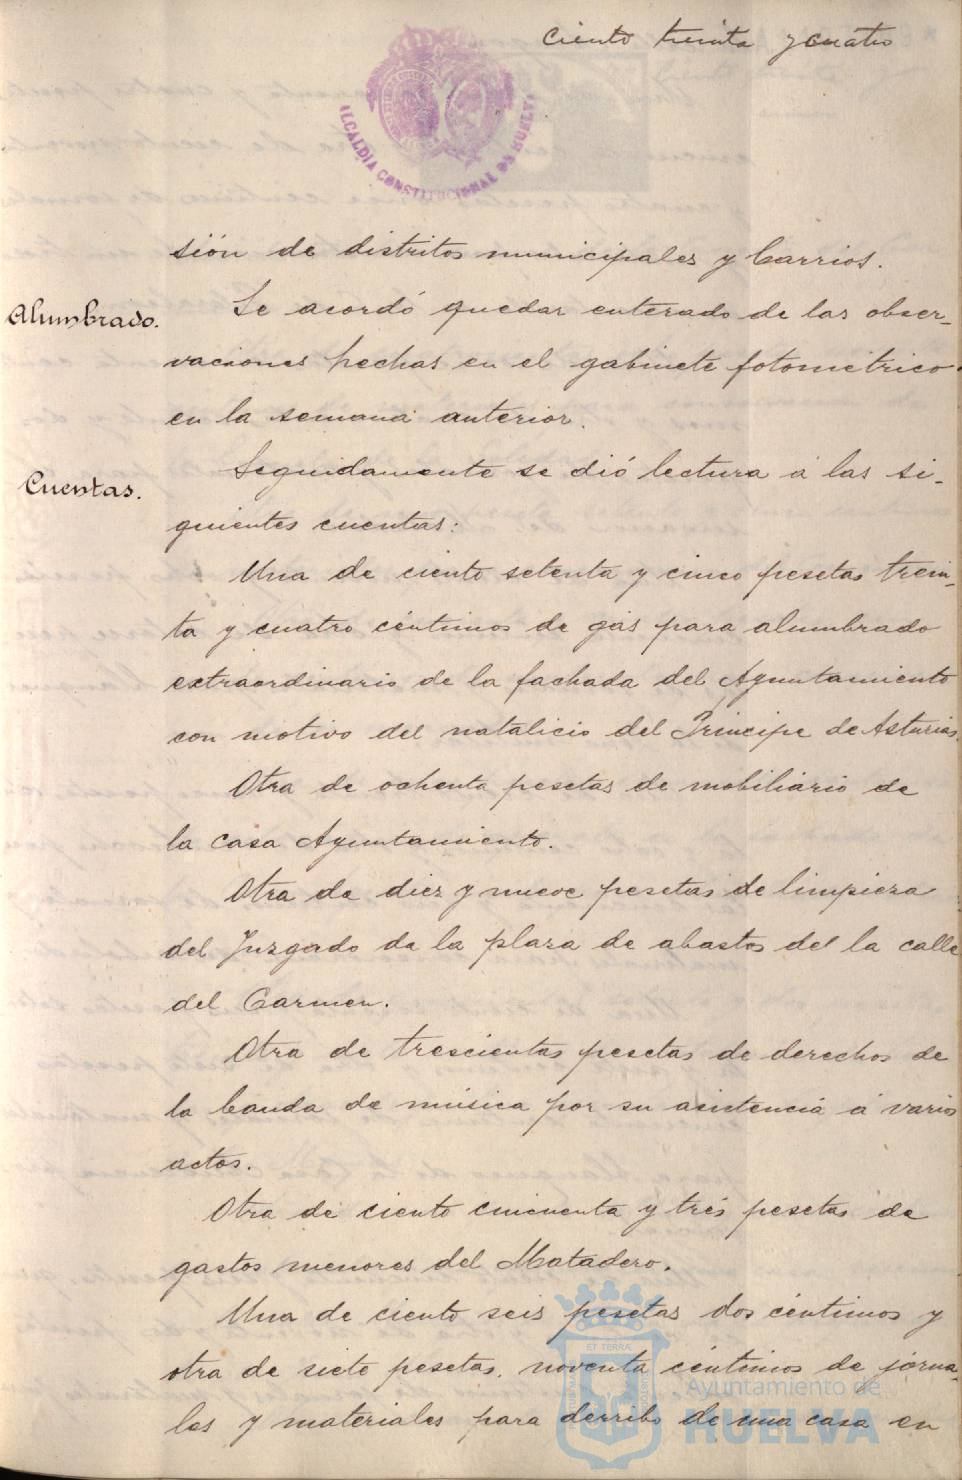 Ciento treinta y cuatro
ALCALDIA CONSTITUCIONAL DE HUELVA
sión de distritos municipales y barrios.
Alumbrado.
Se acordó quedar enterado de las obser-
vaciones hechas en el gabinete fotométrico
en la semana anterior.
Cuentas.
Seguidamente se dió lectura á las si-
guientes cuentas:
Una de ciento setenta y cinco pesetas trein-
ta y cuatro céntimos de gas para alumbrado
extraordinario de la fachada del Ayuntamiento
con motivo del natalicio del Príncipe de Asturias.
Otra de ochenta pesetas de mobiliario de
la casa Ayuntamiento.
Otra de diez y nueve pesetas de limpieza
del Juzgado de la plaza de abastos de la calle
del Carmen.
Otra de trescientas pesetas de derechos de
la banda de música por su asistencia á varios
actos.
Otra de ciento cincuenta y tres pesetas de
gastos menores del Matadero.
Una de ciento seis pesetas dos céntimos y
otra de siete pesetas noventa céntimos de jorna-
les y materiales para derribo de una casa en
ET TERRA
Ayuntamiento de
HUELVA